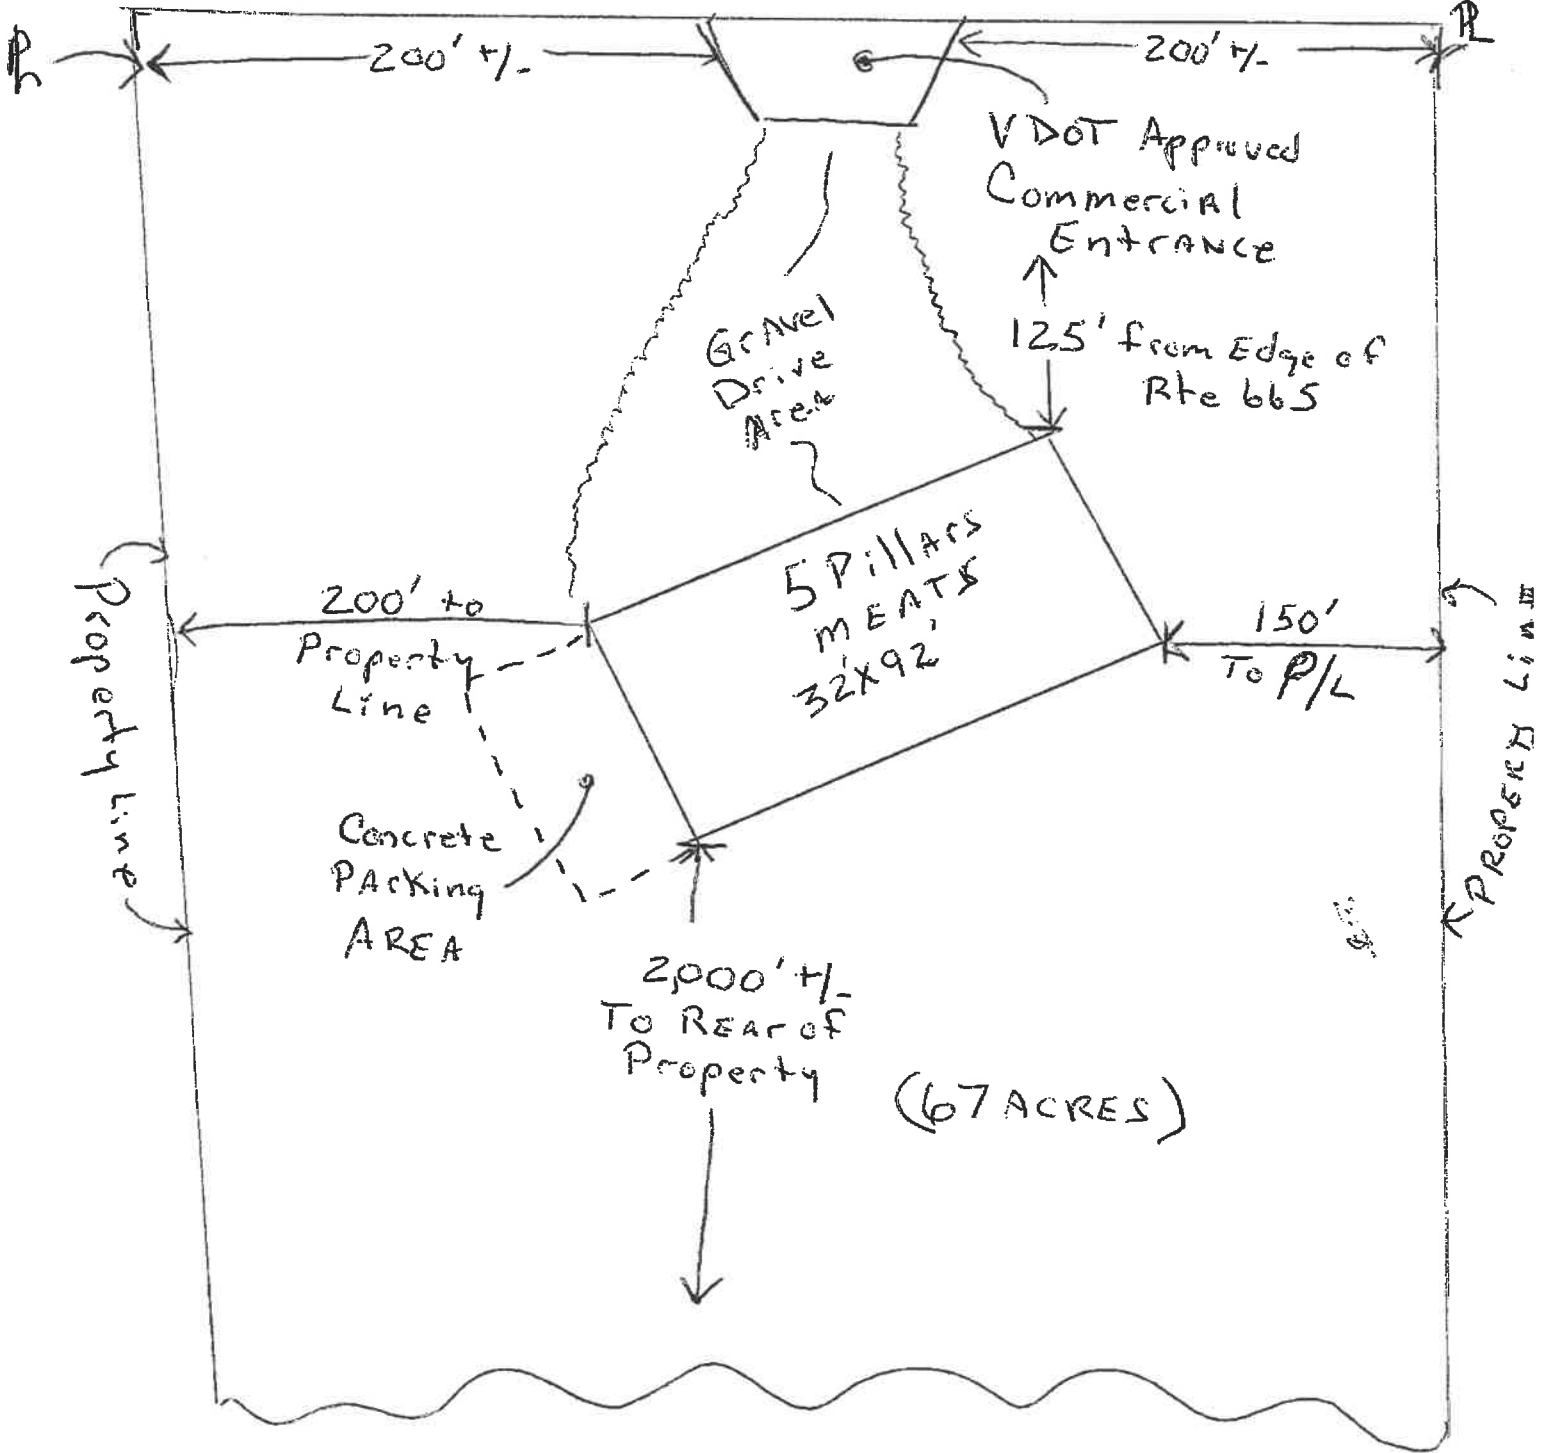 PL
200' +/-
200' +/-
PL
VDOT Approved
Commercial
Entrance
125' from Edge of
Rte 665
Gravel
Drive
Area
5 Pillars
MEATS
32'X92'
200' to
Property
Line
150'
To P/L
Property Line
PROPERTY Line
Concrete
Parking
AREA
2,000' +/-
To REAr of
Property
(67 ACRES)